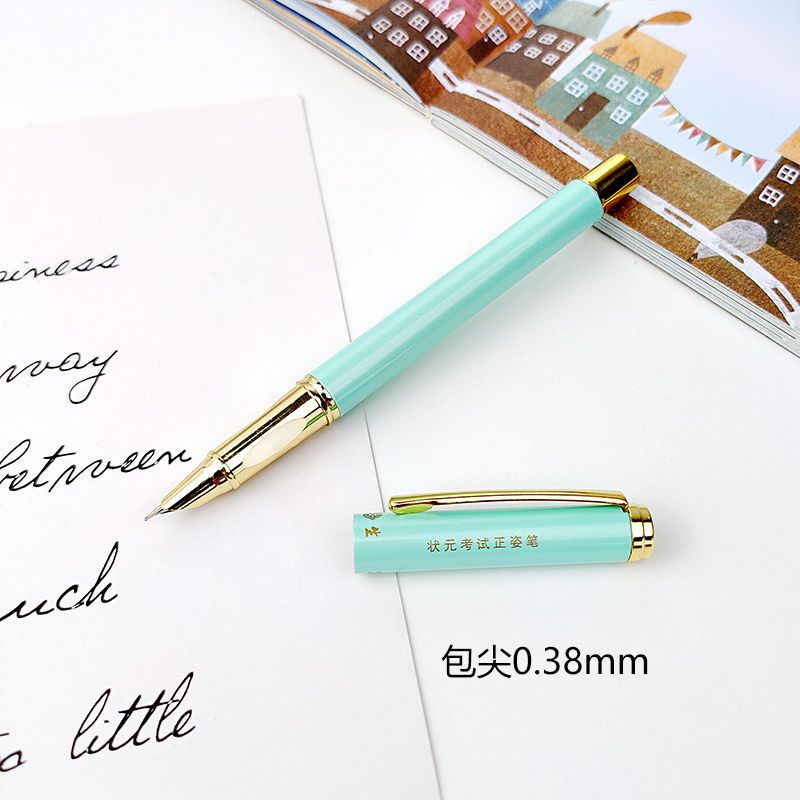 way
between
uch
to little
笙
状元考试正姿笔
包尖0.38mm